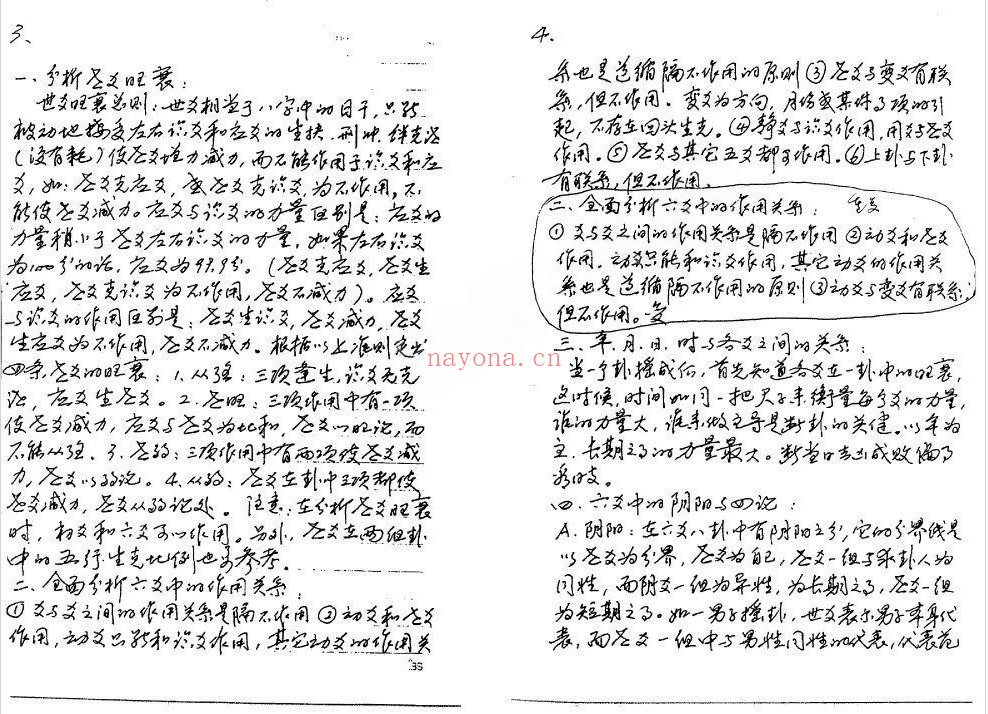 3、
一、分析世爻旺衰：
世爻旺衰总则：世爻相当于八字中的日干，只能
被动地接受左右识爻和应爻的生扶、刑冲、绊克泄
（没有耗）使世爻增力减力，而不能作用于识爻和应
爻，如：世爻克应爻，或世爻克识爻，为不作用，不
能使世爻减力。应爻与识爻的力量区别是：应爻的
力量稍小于世爻左右识爻的力量，如果左右识爻
为100分的话，应爻为99.9分。（世爻克应爻，世爻生
应爻，世爻克识爻为不作用，世爻不减力）。应爻
与识爻的作用区别是：世爻生识爻，世爻减力，世爻
生应爻为不作用，世爻不减力。根据以上准则定出
四条世爻的旺衰：1.从强：三项逢生，识爻无克
泄，应爻生世爻。2.世旺：三项作用中有一项
使世爻减力，应爻与世爻为比和，世爻以旺论，而
不能从强。3.世弱：三项作用中有两项使世爻减
力，世爻以弱论。4.从弱：世爻在卦中三项都使
世爻减力，世爻从弱论处。注意：在分析世爻旺衰
时，初爻和六爻可以作用。另外，世爻在两组卦
中的五行生克比例也可参考。
二、全面分析六爻中的作用关系：
①爻与爻之间的作用关系是隔不作用②动爻和世爻
作用，动爻只能和识爻作用，其它动爻的作用关
4.
系也是遵循隔不作用的原则③世爻与变爻有联
系，但不作用。变爻为方向，月结或某件事项的引
起，不存在回头生克。④静爻与识爻作用，用爻与世爻
作用。⑤世爻与其它五爻都可作用。⑥上卦与下卦
有联系，但不作用。
二、全面分析六爻中的作用关系：
①爻与爻之间的作用关系是隔不作用②动爻和世爻
作用，动爻只能和识爻作用，其它动爻的作用关
系也是遵循隔不作用的原则③动爻与变爻有联系
但不作用。
三、年、月、日、时与各爻之间的关系：
当一个卦摇成后，首先知道各爻在一卦中的旺衰，
这时候，时间如同一把尺子来衡量每个爻的力量，
谁的力量大，谁来做主导是断卦的关健。以年为
主，长期之事的力量最大。断当日走出成败偏了
四、六爻中的阴阳与四论：
A.阴阳：在六爻八卦中有阴阳之分，它的分界线是
以世爻为分界，世爻为自己，世爻一组与求卦人为
同性，而阴爻一组为异性，为长期之事，世爻一组
为短期之事。如一男子摇卦，世爻表示男子本身代
表，而世爻一组中与男性同性的代表，代表范
nayona.cn